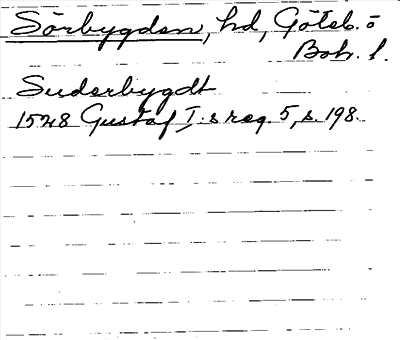 Sörbygden, hd, Göteb. o
Boh. l.
Suderbygdt
1548 Gustaf I:s reg. 5, s. 198.